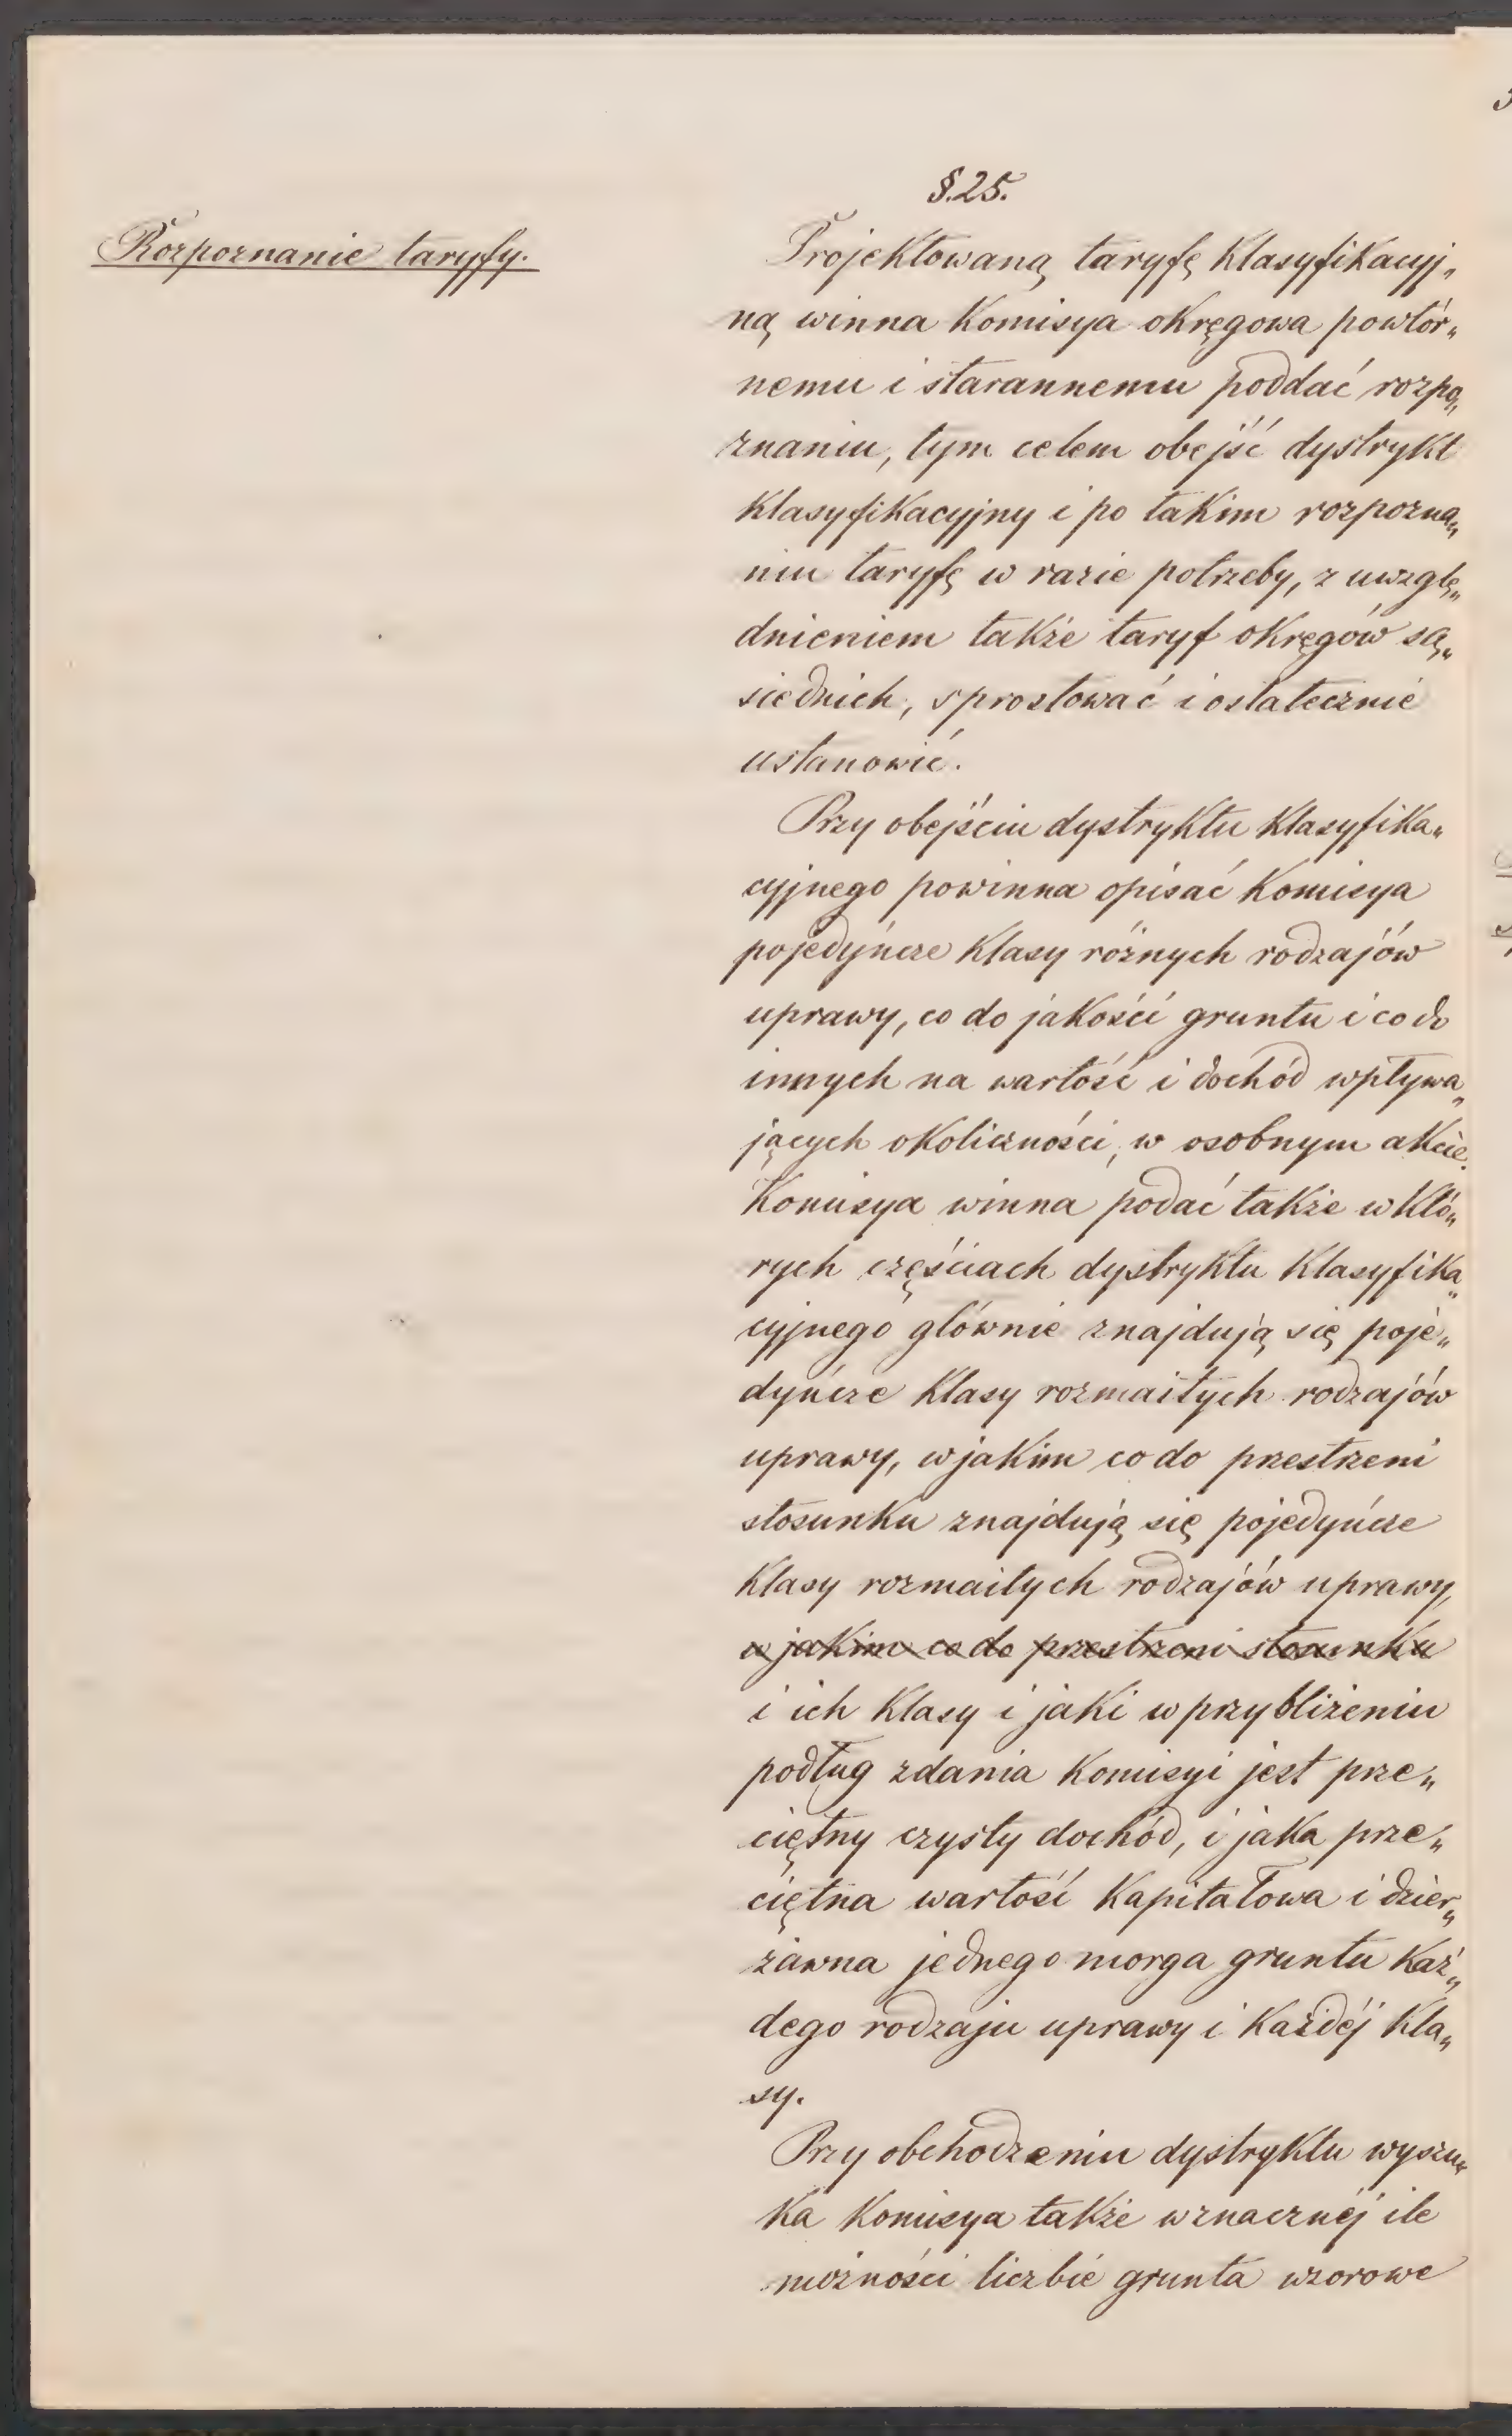 §.25.
Rozpoznanie taryfy.
Projektowaną taryfę klasyfikacyj„
ną winna Komisya okręgowa powtór„
nemu i starannemu poddać rozpo„
znaniu, tym celem obejść dystrykt
klasyfikacyjny i po takim rozpozna„
niu taryfę w razie potrzeby, z uwzglę„
dnieniem także taryf okręgów są„
siednich, sprostować i ostatecznie
ustanowić.
Przy obejściu dystryktu klasyfika„
cyjnego powinna opisać Komisya
pojedyńcze klasy różnych rodzajów
uprawy, co do jakości gruntu i co do
innych na wartość i dochód wpływa„
jących okoliczności, w osobnym akcie.
Komisya winna podać także w któ„
rych częściach dystryktu klasyfika„
cyjnego głównie znajdują się poje„
dyńcze klasy rozmaitych rodzajów
uprawy, w jakim co do przestrzeni
stosunku znajdują się pojedyńcze
klasy rozmaitych rodzajów uprawy,
w jakim co do przestrzeni stosunku
i ich klasy i jaki w przybliżeniu
podług zdania Komisyi jest prze„
ciętny czysty dochód, i jaka prze„
ciętna wartość kapitałowa i dzier„
żawna jednego morga gruntu każ„
dego rodzaju uprawy i każdéj kla„
sy.
Przy obchodzeniu dystryktu wyszu„
ka Komisya także w znacznéj ile
możności liczbie grunta wzorowe